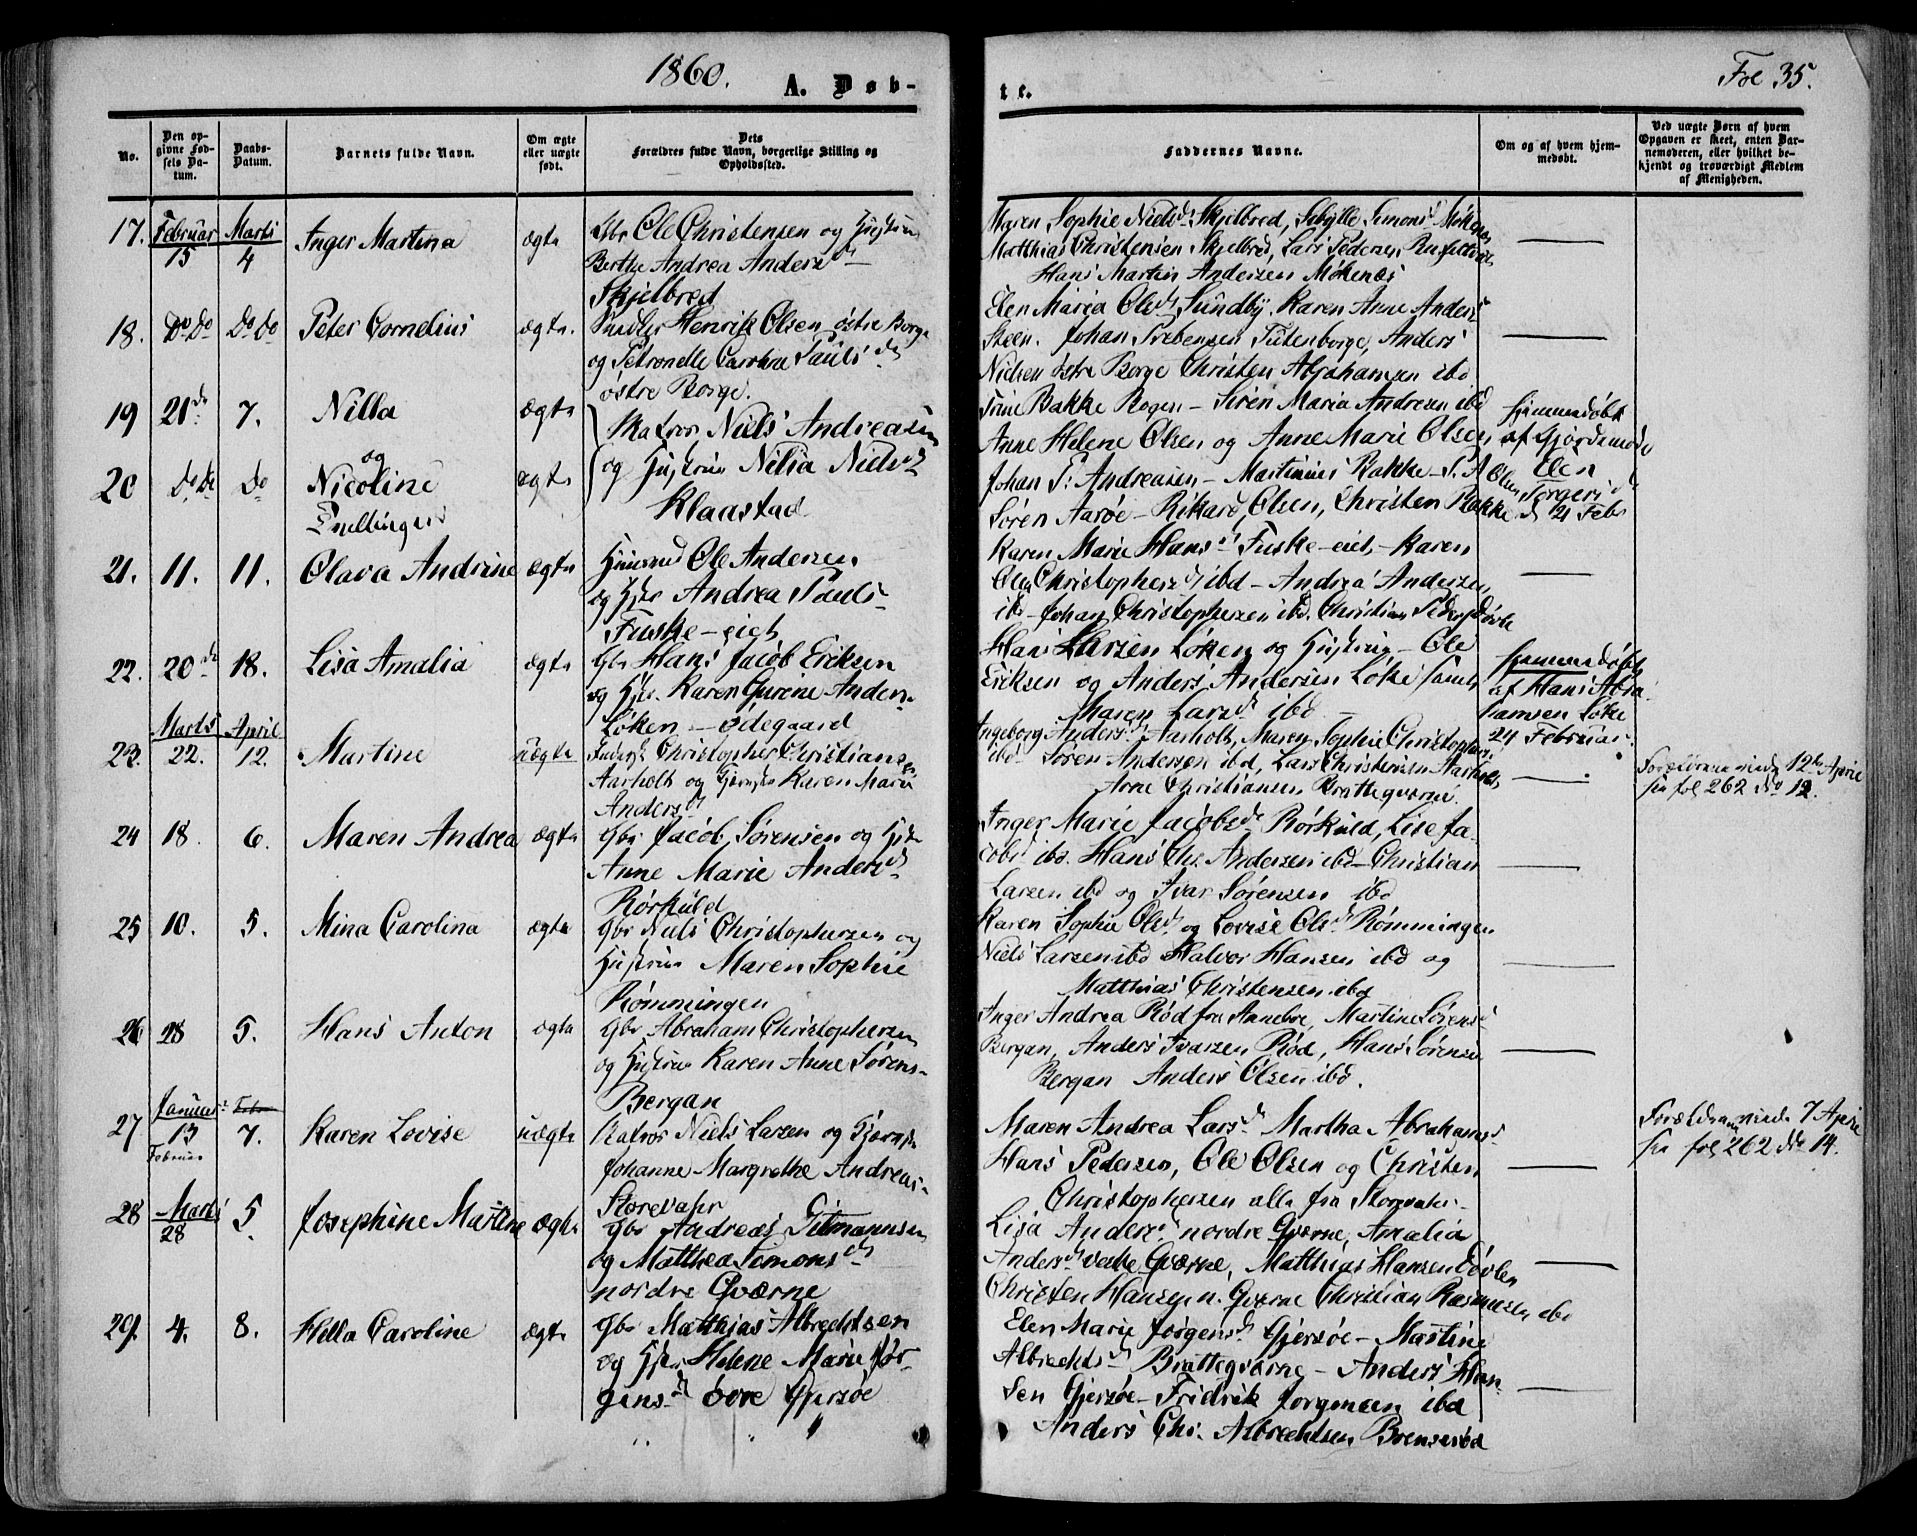 1860.
A. Døb-
No.
Den op-
givne Fød-
sels Da-
tum.
Daabs-
Datum.
Barnets fulde Navn.
Om ægte
eller uægte
født.
Dets
Forældres fulde Navn, borgerlige Stilling og
Opholdssted.
17. Februar 15 Marts 4 Inger Martina ægte Gbr Ole Christensen og Hustru
Berthe Andrea Andersd
Skjelbred
18. Do Do Do Do Peter Cornelius ægte. Henrik Olsen østre Borge
og Petronelle Caroline Paulsd
østre Borge.
19 21de 7. Nilla ægte Matros Niels Andreasen
og
20 Do Do Do Nicoline ægte og Hustru Nilia Nielsd
Tvillinger Klaastad
21. 11. 11. Olava Andrine ægte Huusmd Ole Andersen
og Hst Andrea Pauls-
Fuske-eiet
22. 20de 18. Lisa Amalia ægte Gbr Hans Jacob Eriksen
og Hst. Karen Gurine Anders.
Løken - ødegaard
23. Marts 22. April 12. Martine uægte Christopher Christiansen
Aarholt og Karen Marie
Andersd
24 18. 6. Maren Andrea ægte Gbr Jacob Sørensen og Hst
Anne Marie Andersd
Rørkuld
25 10. 5. Mina Carolina ægte Gbr Niels Christophersen og
Hustru Maren Sophie
Rømmingen
26 28 5. Hans Anton ægte Gbr Abraham Christophersen
og Hustru Karen Anne Sørens-
Bergan
27 Januar 13 Februar 7. Karen Lovise uægte Matros Niels Larsen og
Johanne Margrethe Andreas-
Storevahr
28 Marts 28 5. Josephine Martine ægte Gbr Andreas Titmannsen
og Matthea Simonsd
nordre Gværne
29. 4. 8. Hella Caroline ægte Gbr Matthias Albrechtsen
og Hst Helene Marie Jør-
gensd øvre Gjersøe
Foe 35.
te.
Faddernes Navne.
Om og af hvem hjem-
medøbt.
Ved uægte Børn af hvem
Opgaven er skeet, enten Bar-
nemoderen, eller hvilket be-
kjendt og troværdigt Medlem
af Menigheden.
Maren Sophie Nielsd Skjelbred, Sibylle Simonsd Møkenæs
Matthias Christensen Skjelbred, Lars Pedersen
Hans Martin Andersen Møkenæs
Elen Maria Olsd Sundby, Karen Anne Andersd
Steen. Johan Prebensen Sutenborge, Anders
Nielsen østre Borge Christen Abrahamsen ibd
Trine Bakke Bogen - Siren Maria Andresen ibd hjemmedøbt
Anne Helene Olsen og Anne Marie Olsen af Gjordemode
Johan P. Andreasen - Martinius Bakke - Elen
Søren Aarøe - Rikard Olsen, Christen Bakke Torgersd d 21 Febr
Karen Marie Hansd Fuske-eiet - Karen
Christophersd ibd - Andrea Andersen
ibd - Johan Christophersen ibd. Christian
Hans Larsen Løken og Hustru - Ole hjemmedøbt
Eriksen og Anders Andersen Løke samt af Hans Abra
Maren Larsd ibd hamsen Løke
24 Februar
Ingeborg Andersd Aarholt, Maren Sophie Christophersd
ibd Søren Andersen ibd, Lars Christensen Aarholt
Arne Christiansen Brattegværne. Forældrene viede 12te April
fol 262 No 12.
Inger Marie Jacobsd Rørkuld, Lise Ja-
cobsd ibd. Hans Chr. Andersen ibd - Christian
Larsen ibd og Ivar Sørensen ibd
Karen Sophie Olsd og Lovise Olsd Rømmingen
Niels Larsen ibd Halvor Hansen ibd og
Matthias Christensen ibd
Inger Andrea Rød fra Anneboe, Martine Sørensd
Bergan, Anders Ivarsen Rød, Hans Sørensen
Bergan Anders Olsen ibd.
Maren Andrea Larsd Martha Abrahamsd Forældrene viede 7 April
Hans Pedersen, Ole Olsen og Christen fol 262 No 14.
Christophersen alle fra Storevahr.
Lisa Andersd nordre Gværne, Amalia
Andersd vestre Gværne, Matthias Hansen Døvlen
Christen Hansen n. Gværne Christian Rasmussen ibd
Elen Marie Jørgensd Gjersøe - Martine
Albrechtsd Brattegværne - Anders Han-
sen Gjersøe - Fridrik Jørgensen ibd
Anders Chr. Albrechtsen Brensrød